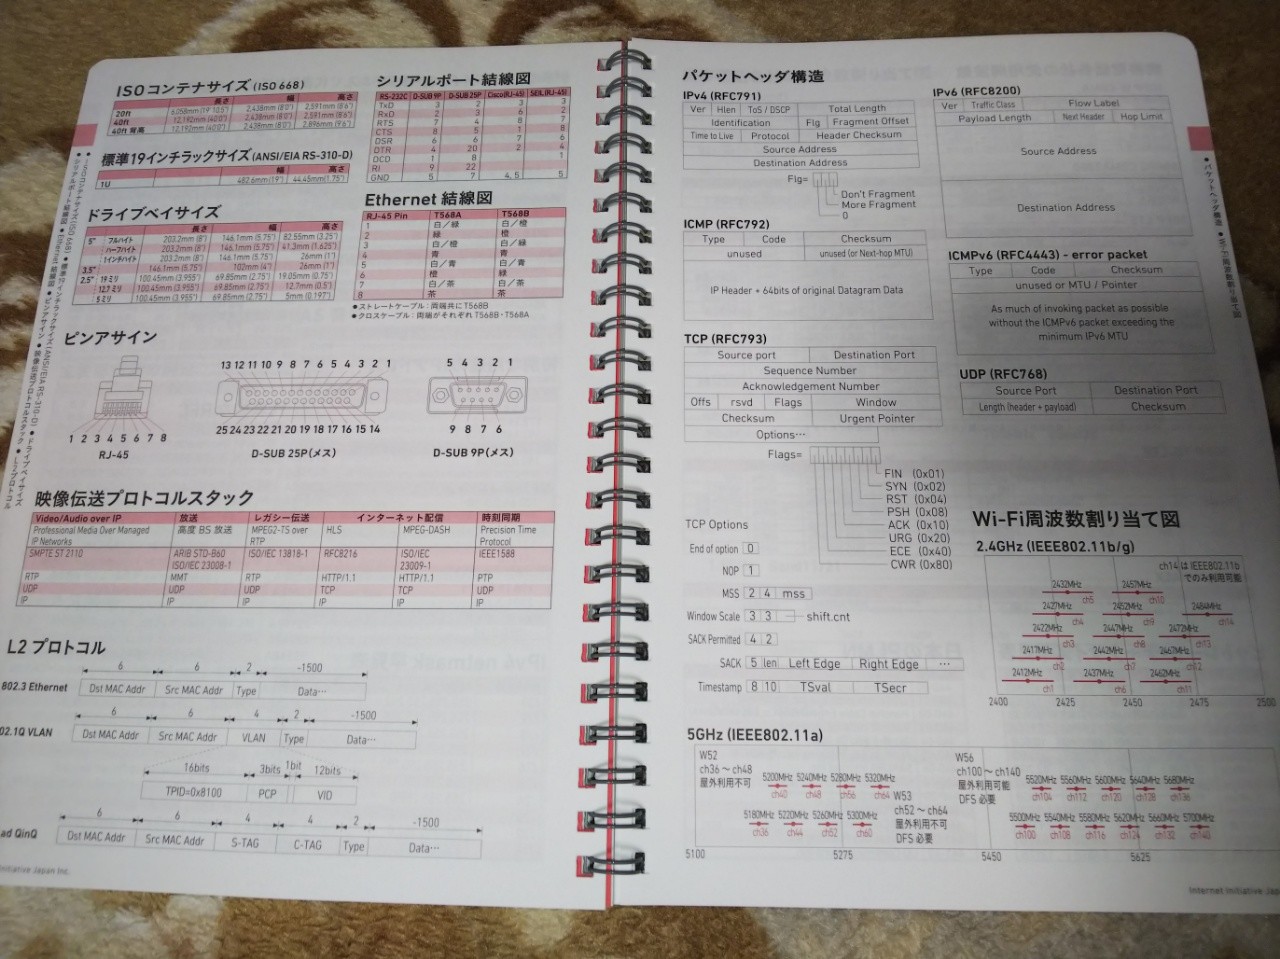 ISO コンテナサイズ (ISO 668)
長さ 幅 高さ
20ft 6,058mm (19' 10.5") 2,438mm (8'0") 2,591mm (8'6")
40ft 12,192mm (40'0") 2,438mm (8'0") 2,591mm (8'6")
40ft 背高 12,192mm (40'0") 2,438mm (8'0") 2,896mm (9'6")
標準19インチラックサイズ (ANSI/EIA RS-310-D)
幅 高さ
1U 482.6mm (19") 44.45mm (1.75")
ドライブベイサイズ
長さ 幅 高さ
5" フルハイト 203.2mm (8") 146.1mm (5.75") 82.55mm (3.25")
ハーフハイト 203.2mm (8") 146.1mm (5.75") 41.3mm (1.625")
1インチハイト 203.2mm (8") 146.1mm (5.75") 26mm (1")
3.5" 146.1mm (5.75") 102mm (4") 26mm (1")
2.5" 19ミリ 100.45mm (3.955") 69.85mm (2.75") 19.05mm (0.75")
12.7ミリ 100.45mm (3.955") 69.85mm (2.75") 12.7mm (0.5")
5ミリ 100.45mm (3.955") 69.85mm (2.75") 5mm (0.197")
シリアルポート結線図
RS-232C D-SUB 9P D-SUB 25P Cisco(RJ-45) SEIL(RJ-45)
TxD 3 2 3 3
RxD 2 3 6 2
RTS 7 4 8 7
CTS 8 5 1 8
DSR 6 6 7 6
DTR 4 20 2 4
DCD 1 8 1
RI 9 22
GND 5 7 4, 5 5
Ethernet 結線図
RJ-45 Pin T568A T568B
1 白／緑 白／橙
2 緑 橙
3 白／橙 白／緑
4 青 青
5 白／青 白／青
6 橙 緑
7 白／茶 白／茶
8 茶 茶
●ストレートケーブル：両端共にT568B
●クロスケーブル：両端がそれぞれT568B・T568A
ピンアサイン
1 2 3 4 5 6 7 8
RJ-45
13 12 11 10 9 8 7 6 5 4 3 2 1
25 24 23 22 21 20 19 18 17 16 15 14
D-SUB 25P (メス)
5 4 3 2 1
9 8 7 6
D-SUB 9P (メス)
映像伝送プロトコルスタック
Video/Audio over IP 放送 レガシー伝送 インターネット配信 時刻同期
Professional Media Over Managed IP Networks 高度 BS 放送 MPEG2-TS over RTP HLS MPEG-DASH Precision Time Protocol
SMPTE ST 2110 ARIB STD-B60 ISO/IEC 23008-1 ISO/IEC 13818-1 RFC8216 ISO/IEC 23009-1 IEEE1588
RTP MMT RTP HTTP/1.1 HTTP/1.1 PTP
UDP UDP UDP TCP TCP UDP
IP IP IP IP IP IP
L2 プロトコル
6 6 2 -1500
802.3 Ethernet Dst MAC Addr Src MAC Addr Type Data…
6 6 4 2 -1500
02.1Q VLAN Dst MAC Addr Src MAC Addr VLAN Type Data…
16bits 3bits 1bit 12bits
TPID=0x8100 PCP VID
6 6 4 4 2 -1500
ad QinQ Dst MAC Addr Src MAC Addr S-TAG C-TAG Type Data…
Initiative Japan Inc.
●ISOコンテナサイズ (ISO 668) ●標準19インチラックサイズ (ANSI/EIA RS-310-D) ●ドライブベイサイズ
●シリアルポート結線図 ●Ethernet 結線図 ●ピンアサイン ●映像伝送プロトコルスタック ●L2プロトコル
パケットヘッダ構造
IPv4 (RFC791)
Ver Hlen ToS / DSCP Total Length
Identification Flg Fragment Offset
Time to Live Protocol Header Checksum
Source Address
Destination Address
Flg=
Don't Fragment
More Fragment
0
ICMP (RFC792)
Type Code Checksum
unused unused (or Next-hop MTU)
IP Header + 64bits of original Datagram Data
TCP (RFC793)
Source port Destination Port
Sequence Number
Acknowledgement Number
Offs rsvd Flags Window
Checksum Urgent Pointer
Options…
Flags=
FIN (0x01)
SYN (0x02)
RST (0x04)
PSH (0x08)
ACK (0x10)
URG (0x20)
ECE (0x40)
CWR (0x80)
TCP Options
End of option 0
NOP 1
MSS 2 4 mss
Window Scale 3 3 shift.cnt
SACK Permitted 4 2
SACK 5 len Left Edge Right Edge …
Timestamp 8 10 TSval TSecr
IPv6 (RFC8200)
Ver Traffic Class Flow Label
Payload Length Next Header Hop Limit
Source Address
Destination Address
ICMPv6 (RFC4443) - error packet
Type Code Checksum
unused or MTU / Pointer
As much of invoking packet as possible
without the ICMPv6 packet exceeding the
minimum IPv6 MTU
UDP (RFC768)
Source Port Destination Port
Length (header + payload) Checksum
Wi-Fi周波数割り当て図
2.4GHz (IEEE802.11b/g)
ch14 は IEEE802.11b
でのみ利用可能
2432MHz 2457MHz
ch5 ch10
2427MHz 2452MHz 2484MHz
ch4 ch9 ch14
2422MHz 2447MHz 2472MHz
ch3 ch8 ch13
2417MHz 2442MHz 2467MHz
ch2 ch7 ch12
2412MHz 2437MHz 2462MHz
ch1 ch6 ch11
2400 2425 2450 2475 2500
5GHz (IEEE802.11a)
W52
ch36 ～ ch48
屋外利用不可
5200MHz 5240MHz 5280MHz 5320MHz
ch40 ch48 ch56 ch64
5180MHz 5220MHz 5260MHz 5300MHz
ch36 ch44 ch52 ch60
W53
ch52 ～ ch64
屋外利用不可
DFS 必要
W56
ch100 ～ ch140
屋外利用可能
DFS 必要
5520MHz 5560MHz 5600MHz 5640MHz 5680MHz
ch104 ch112 ch120 ch128 ch136
5500MHz 5540MHz 5580MHz 5620MHz 5660MHz 5700MHz
ch100 ch108 ch116 ch124 ch132 ch140
5100 5275 5450 5625
Internet Initiative Jap
●パケットヘッダ構造 ●Wi-Fi周波数割り当て図